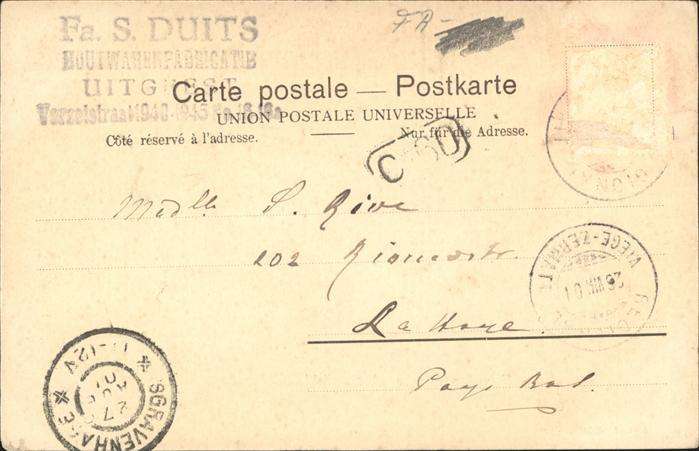 Fa. S. DUITS
HOUTWARENFABRICATIE
UITGEEST
FA-
Carte postale — Postkarte
UNION POSTALE UNIVERSELLE
Côté réservé à l'adresse. Nur für die Adresse.
Madlle S. Rive
202
La Haye.
Pays Bas.
VIEGE-ZERMATT
26 VIII 01
SGRAVENHAGE
11-12V
27
AUG
01